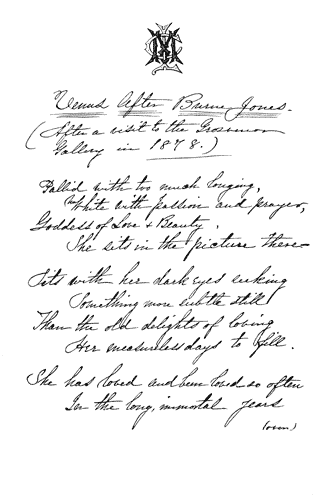 Venus After Burne-Jones.
(After a visit to the Grosvenor
Gallery in 1878.)
Pallid with too much longing,
White with passion and prayer,
Goddess of Love & Beauty,
She sits in the picture there—
Sits with her dark eyes seeking
Something more subtle still
Than the old delights of loving
Her measureless days to fill.
She has loved and been loved so often
In the long, immortal years
(over)